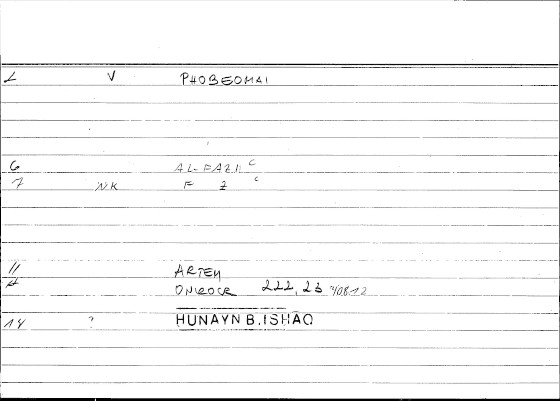 L V PHOBEOMAI
6 AL-FAZI C
7 NK F Z C
11 ARTEM
A ONIROCR 222, 23 40812
14 ? HUNAYN B. ISHAQ